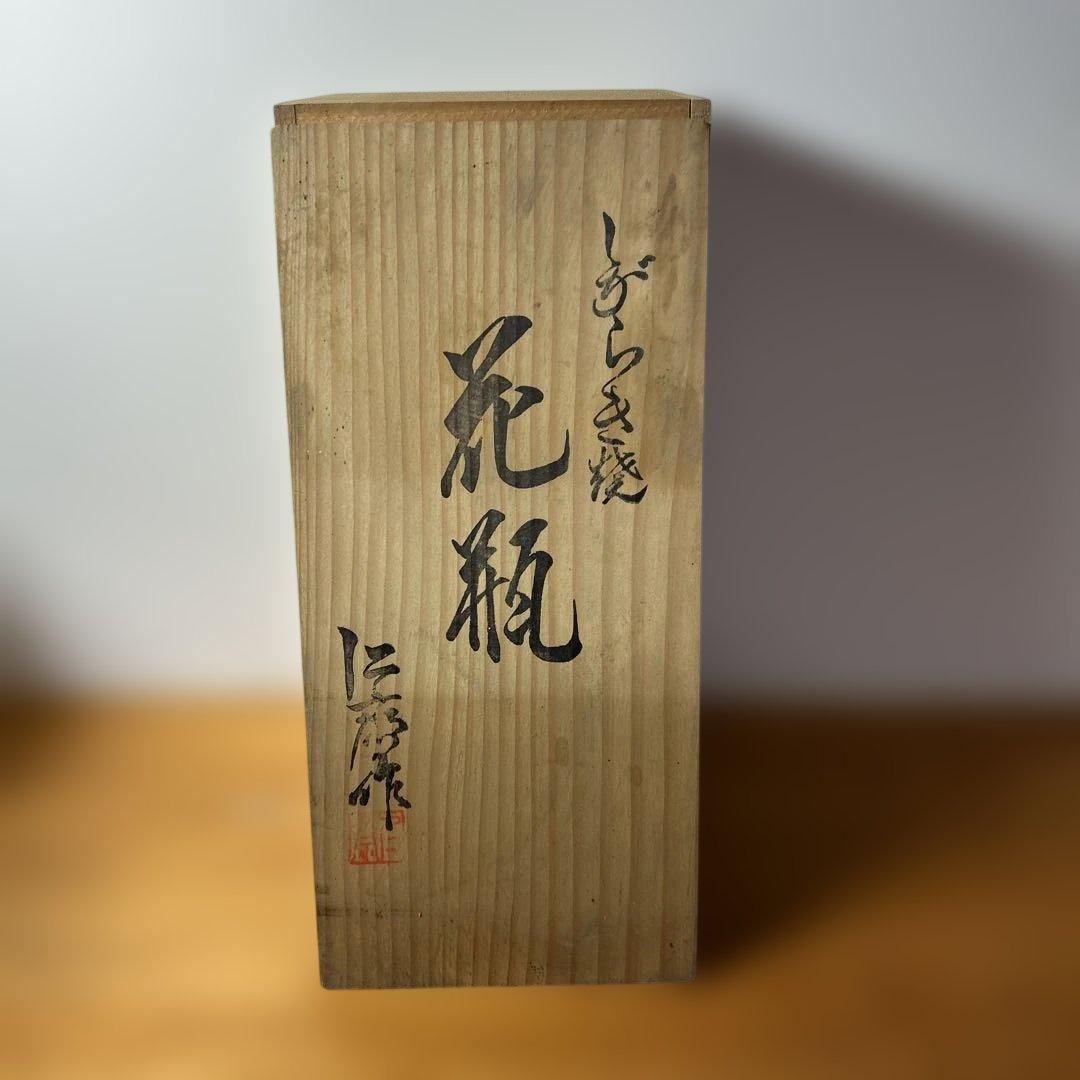 しがらき焼
花瓶
仁
作